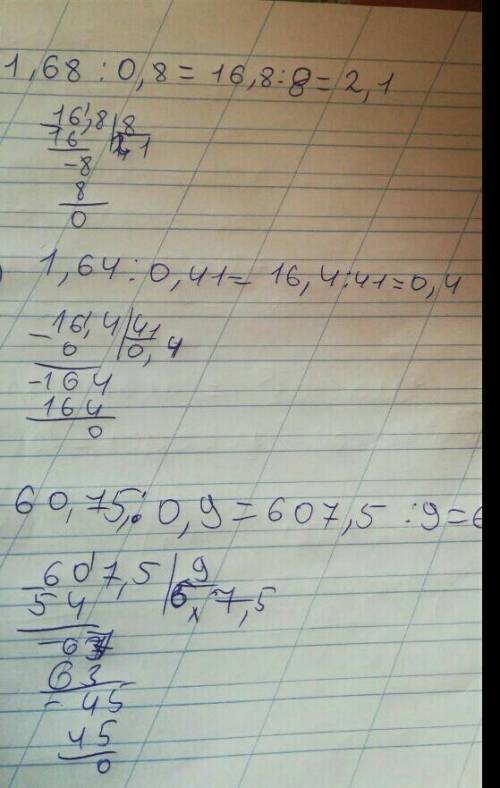 1,68 : 0,8 = 16,8 : 8 = 2,1
16,8 | 8
16 | 2,1
-8
8
0
) 1,64 : 0,41 = 16,4 : 41 = 0,4
-16,4 | 41
0 | 0,4
-164
164
0
60,75 : 0,9 = 607,5 : 9 = 6
-607,5 | 9
54 | 67,5
-67
63
-45
45
0